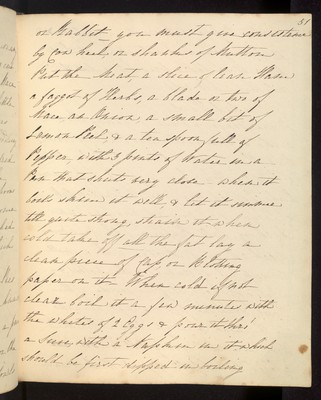 51
or Rabbit you must give consistence
by Cow heel, or shanks of Mutton
Put the Meat, a slice of lean Ham
a faggot of Herbs, a blade or two of
Mace an Onion a small bit of
Lemon Peel & a tea spoon full of
Pepper, with 3 pints of Water in a
Pan that shuts very close when it
boils skim it well & let it simmer
till quite strong, strain it when
cold take of all the fat lay a
clean piece of cap or Blotting
paper on it When cold if not
clear boil it a few minutes with
the whites of 2 Eggs & pour it thro'
a Sieve with a Napkin in it which
should be first dipped in boiling